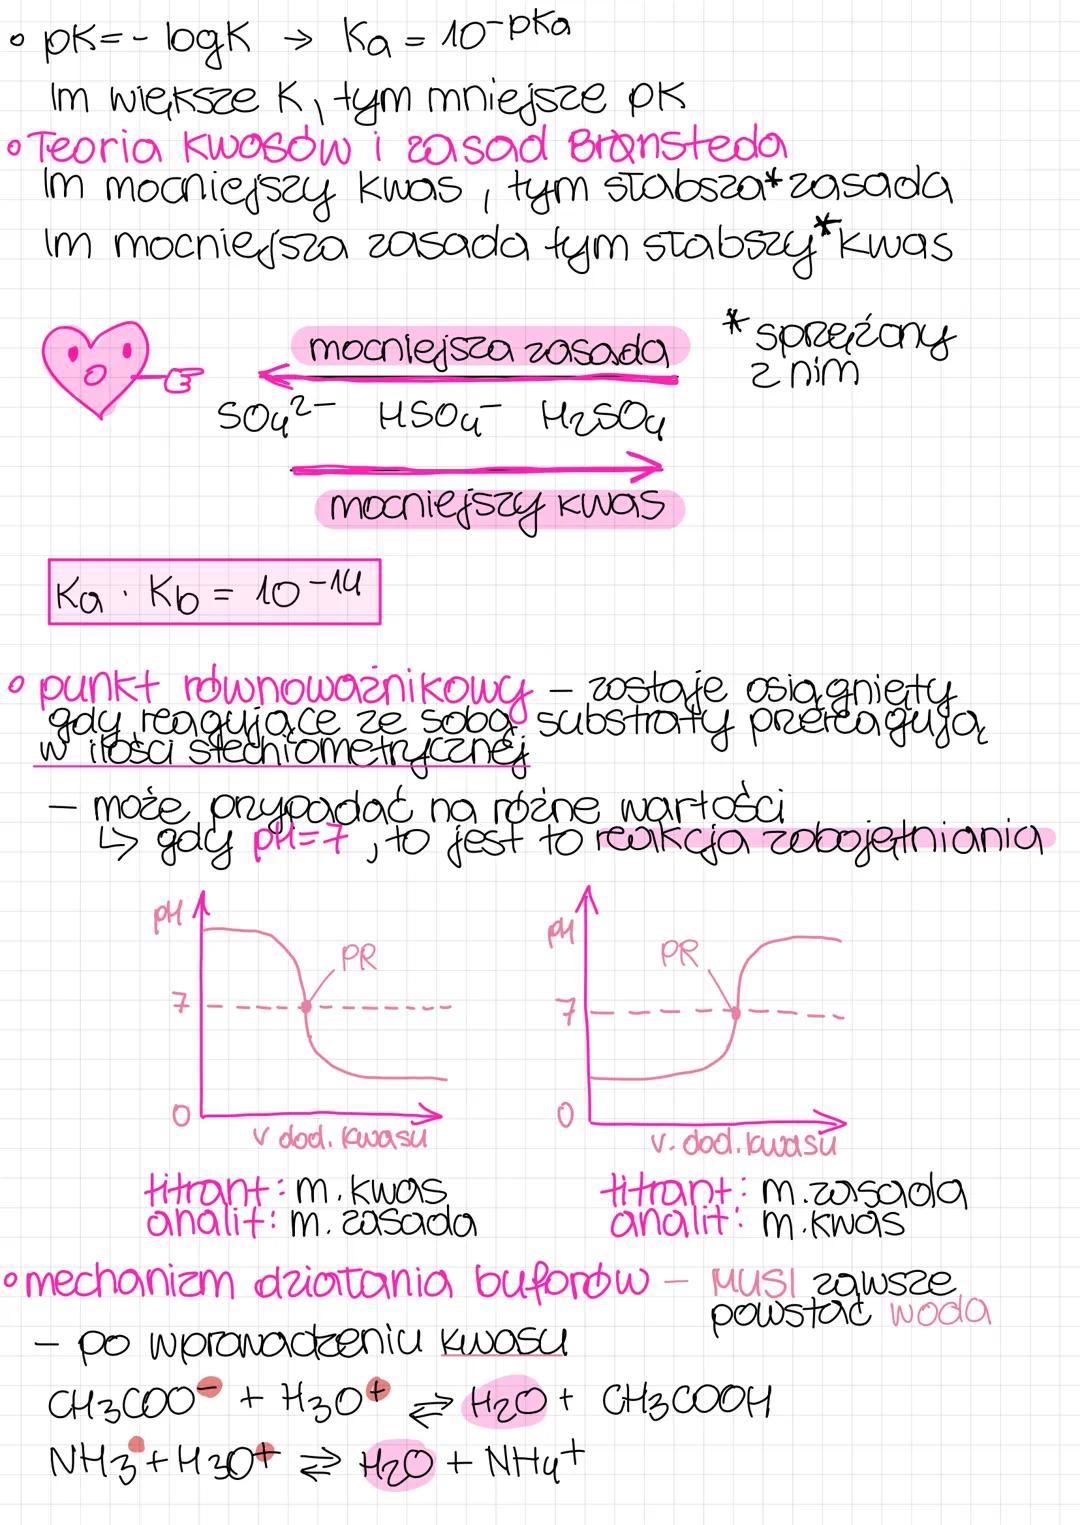 • pK = - logK → Ka = 10^-pKa
Im większe K, tym mniejsze pK
• Teoria kwasów i zasad Brønsteda
Im mocniejszy kwas, tym słabsza* zasada
Im mocniejsza zasada tym słabszy* kwas
* sprzężony
z nim
mocniejsza zasada
SO₄²⁻ HSO₄⁻ H₂SO₄
mocniejszy kwas
Ka · Kb = 10⁻¹⁴
• punkt równoważnikowy – zostaje osiągnięty
gdy reagujące ze sobą substraty przereagują
w ilości stechiometrycznej
– może przypadać na różne wartości
↳ gdy pH=7, to jest to reakcja zobojętniania
pH PR 7 0
v dod. kwasu
titrant: m. kwas
analit: m. zasada
pH PR 7 0
v. dod. kwasu
titrant: m. zasada
analit: m. kwas
• mechanizm działania buforów – MUSI zawsze
powstać woda
– po wprowadzeniu kwasu
CH₃COO⁻ + H₃O⁺ ⇌ H₂O + CH₃COOH
NH₃ + H₃O⁺ ⇌ H₂O + NH₄⁺